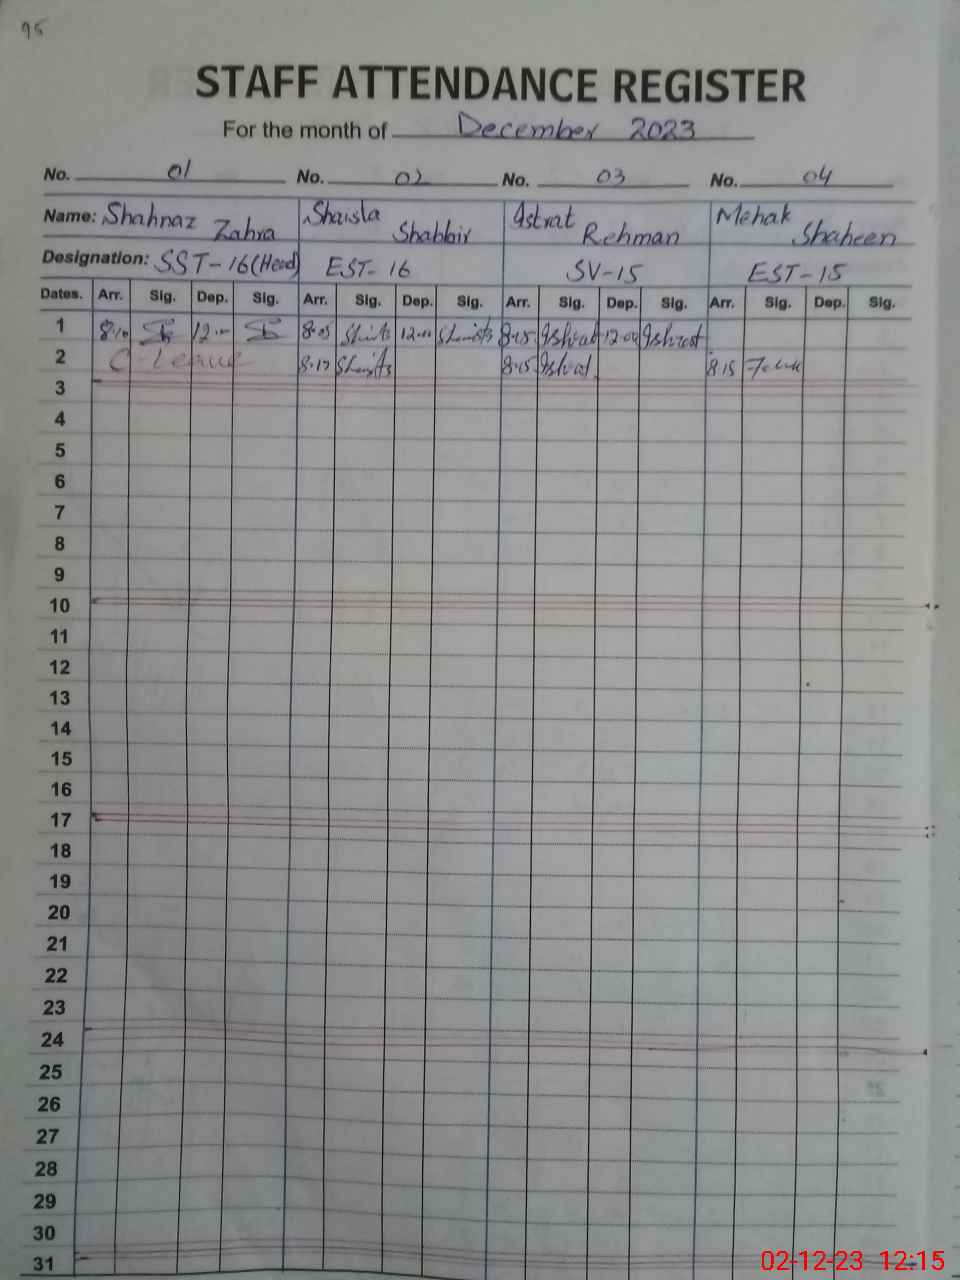 95
STAFF ATTENDANCE REGISTER
For the month of December 2023
No. 01 No. 02 No. 03 No. 04
Name: Shahnaz Zahra Shaista Shabbir Ishrat Rehman Mehak Shaheen
Designation: SST-16(Head) EST-16 SV-15 EST-15
Dates. Arr. Sig. Dep. Sig. Arr. Sig. Dep. Sig. Arr. Sig. Dep. Sig. Arr. Sig. Dep. Sig.
1 8:10 12:00 8:05 12:00 8:15 Ishrat 12:00 Ishrat
2 C-Leave 8:17 8:15 Ishrat 8:15
3
4
5
6
7
8
9
10
11
12
13
14
15
16
17
18
19
20
21
22
23
24
25
26
27
28
29
30
31
02-12-23 12:15